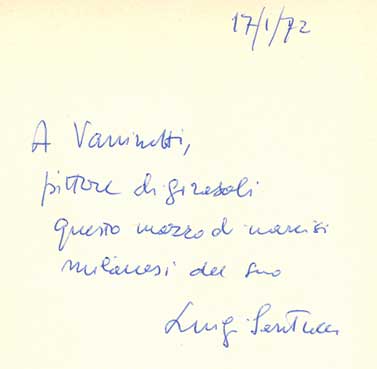 17/1/72
A Vanninetti,
pittore di girasoli
questo mazzo di narcisi
milanesi del suo
Luigi Santucci